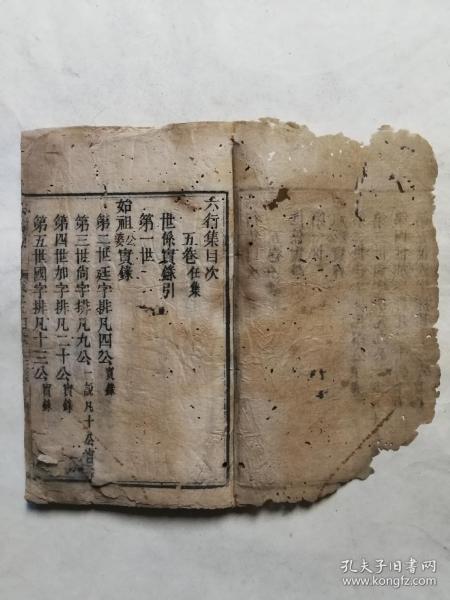 六行集目次
五卷 任集
世係實錄引
第一世
始祖公婆實錄
第二世廷字排凡四公實錄
第三世尙字排凡九公一說凡十公
第四世加字排凡二十公實錄
第五世國字排凡十三公實錄
孔夫子旧书网
www.kongfz.com